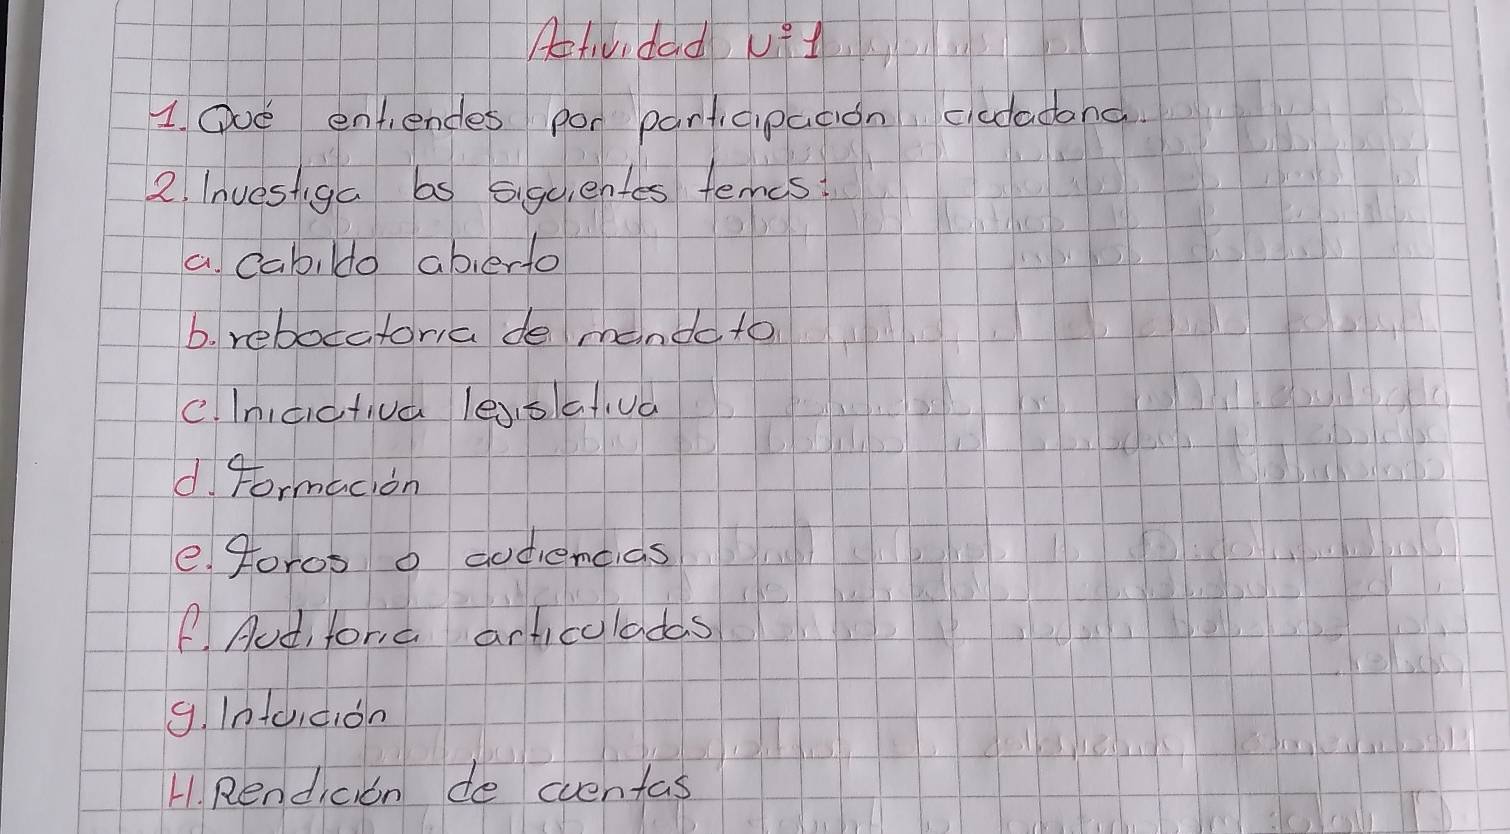 Actividad Nº1
1. Qué entiendes por participación ciudadana.
2. Investiga los siguientes temas:
a. cabildo abierto
b. rebocatoria de mandato
c. Iniciativa legislativa
d. Formación
e. Foros o audiencias
f. Auditoria articuladas
g. Intuición
H. Rendición de cuentas